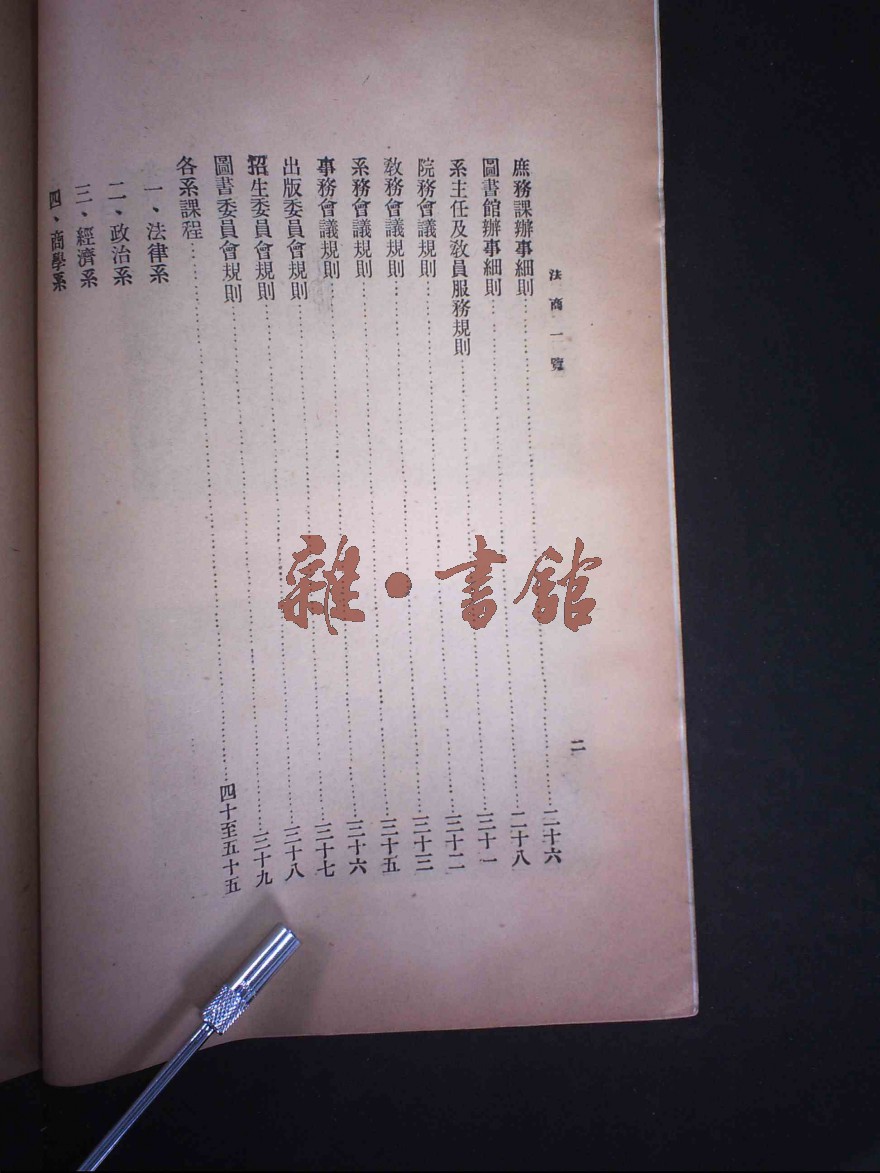 法商一覽 二
庶務課辦事細則……二十六
圖書館辦事細則……二十八
系主任及教員服務規則……三十一
院務會議規則……三十二
教務會議規則……三十三
系務會議規則……三十五
事務會議規則……三十六
出版委員會規則……三十七
招生委員會規則……三十八
圖書委員會規則……三十九
各系課程……四十至五十五
一、法律系
二、政治系
三、經濟系
四、商學系
雜·書館